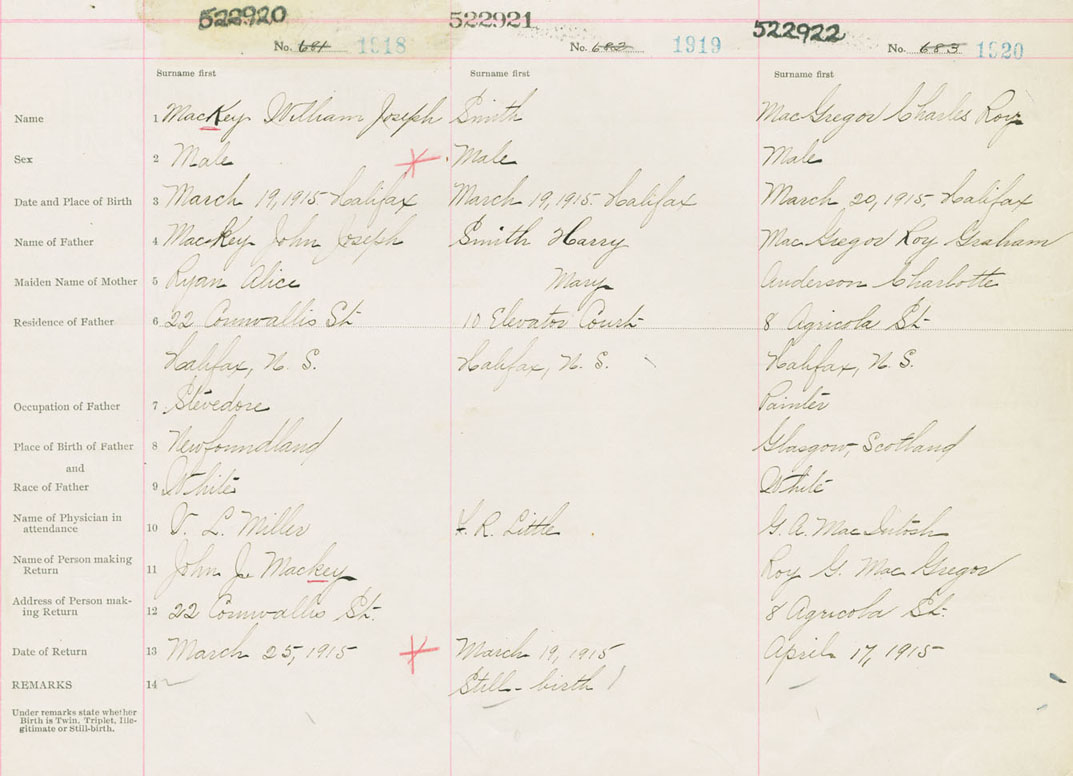 522920 522921 522922
No. 681 1918 No. 682 1919 No. 683 1920
Surname first Surname first Surname first
Name 1 MacKey William Joseph Smith MacGregor Charles Roy
Sex 2 Male Male Male
Date and Place of Birth 3 March 19, 1915 Halifax March 19, 1915 Halifax March 20, 1915 Halifax
Name of Father 4 MacKey John Joseph Smith Harry MacGregor Roy Graham
Maiden Name of Mother 5 Ryan Alice Mary Anderson Charlotte
Residence of Father 6 22 Cornwallis St 10 Elevator Court 8 Agricola St
Halifax, N. S. Halifax, N. S. Halifax, N. S.
Occupation of Father 7 Stevedore Painter
Place of Birth of Father 8 Newfoundland Glasgow, Scotland
and
Race of Father 9 White White
Name of Physician in
attendance 10 V. L. Miller F. R. Little G. A. MacIntosh
Name of Person making
Return 11 John J. Mackey Roy G. MacGregor
Address of Person mak-
ing Return 12 22 Cornwallis St. 8 Agricola St.
Date of Return 13 March 25, 1915 March 19, 1915 April 17, 1915
REMARKS 14 Still-birth
Under remarks state whether
Birth is Twin, Triplet, Ille-
gitimate or Still-birth.